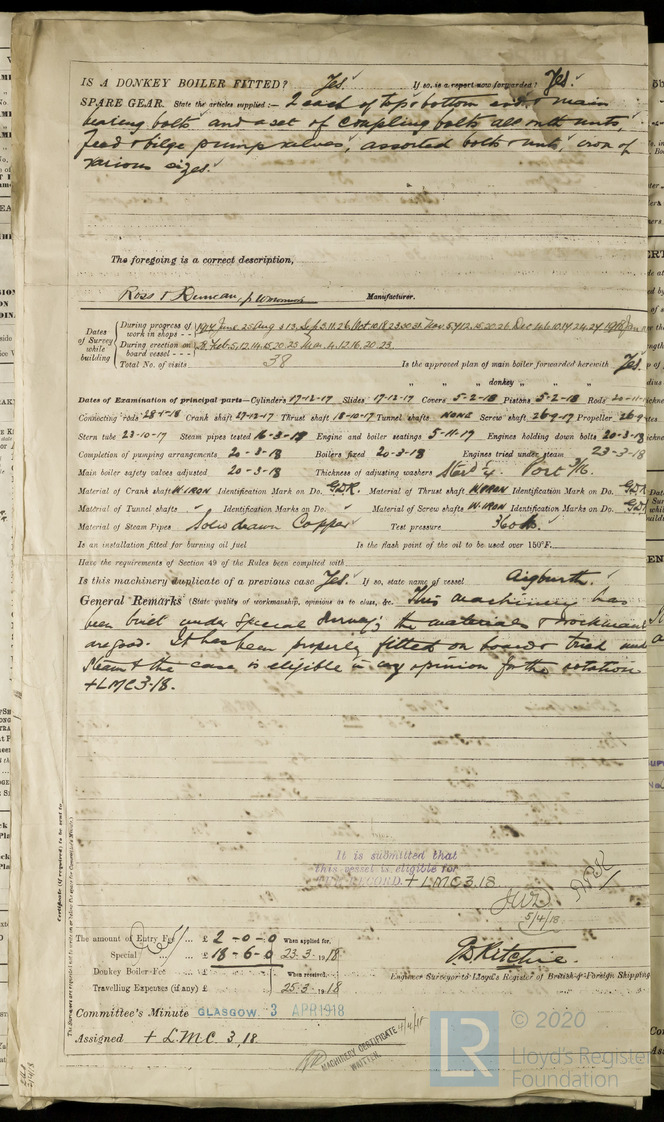 IS A DONKEY BOILER FITTED? Yes. If so, is a report now forwarded? Yes.
SPARE GEAR. State the articles supplied:— 2 each of top & bottom end & main
bearing bolts and a set of coupling bolts all with nuts,
feed & bilge pump valves, assorted bolts & nuts, iron of
various sizes.
The foregoing is a correct description,
Ross & Duncan, Manufacturer.
Dates of Survey while building
During progress of work in shops - -
During erection on board vessel - - -
Total No. of visits 38 Is the approved plan of main boiler forwarded herewith Yes.
" " " donkey " "
Dates of Examination of principal parts—Cylinders 17-12-17 Slides 17-12-17 Covers 5-2-18 Pistons 5-2-18 Rods 20-11-
Connecting rods 28-1-18 Crank shaft 17-12-17 Thrust shaft 18-10-17 Tunnel shafts NONE Screw shaft 26-9-17 Propeller 26-9-
Stern tube 23-10-17 Steam pipes tested 16-3-18 Engine and boiler seatings 5-11-17 Engines holding down bolts 20-3-18
Completion of pumping arrangements 20-3-18 Boilers fixed 20-3-18 Engines tried under steam 23-3-18
Main boiler safety valves adjusted 20-3-18 Thickness of adjusting washers Starb 1/4. Port 3/16.
Material of Crank shaft W.IRON Identification Mark on Do. GDR. Material of Thrust shaft W.IRON Identification Mark on Do. GDR
Material of Tunnel shafts Identification Marks on Do. Material of Screw shafts W.IRON Identification Marks on Do. GDR
Material of Steam Pipes Solid drawn Copper Test pressure 360 lb.
Is an installation fitted for burning oil fuel Is the flash point of the oil to be used over 150°F.
Have the requirements of Section 49 of the Rules been complied with
Is this machinery duplicate of a previous case Yes. If so, state name of vessel Aigburth.
General Remarks (State quality of workmanship, opinions as to class, &c. This machinery has
been built under Special Survey; the materials & workmanship
are good. It has been properly fitted on board & tried under
steam & the case is eligible in my opinion for the notation
+LMC 3-18.
Certificate (if required) to be sent to
It is submitted that
this vessel is eligible for
THE RECORD. + LMC 3.18.
5/4/18
The amount of Entry Fee ... £ 2-0-0 When applied for,
Special ... £ 18-6-0 23.3.1918
Donkey Boiler Fee ... £ When received,
Travelling Expenses (if any) £ 25.3.1918
G.D. Ritchie.
Engineer Surveyor to Lloyd's Register of British & Foreign Shipping
Committee's Minute GLASGOW. 3 APR 1918
Assigned + L.M.C. 3,18.
MACHINERY CERTIFICATE
WRITTEN.
© 2020
Lloyd's Register
Foundation
LR